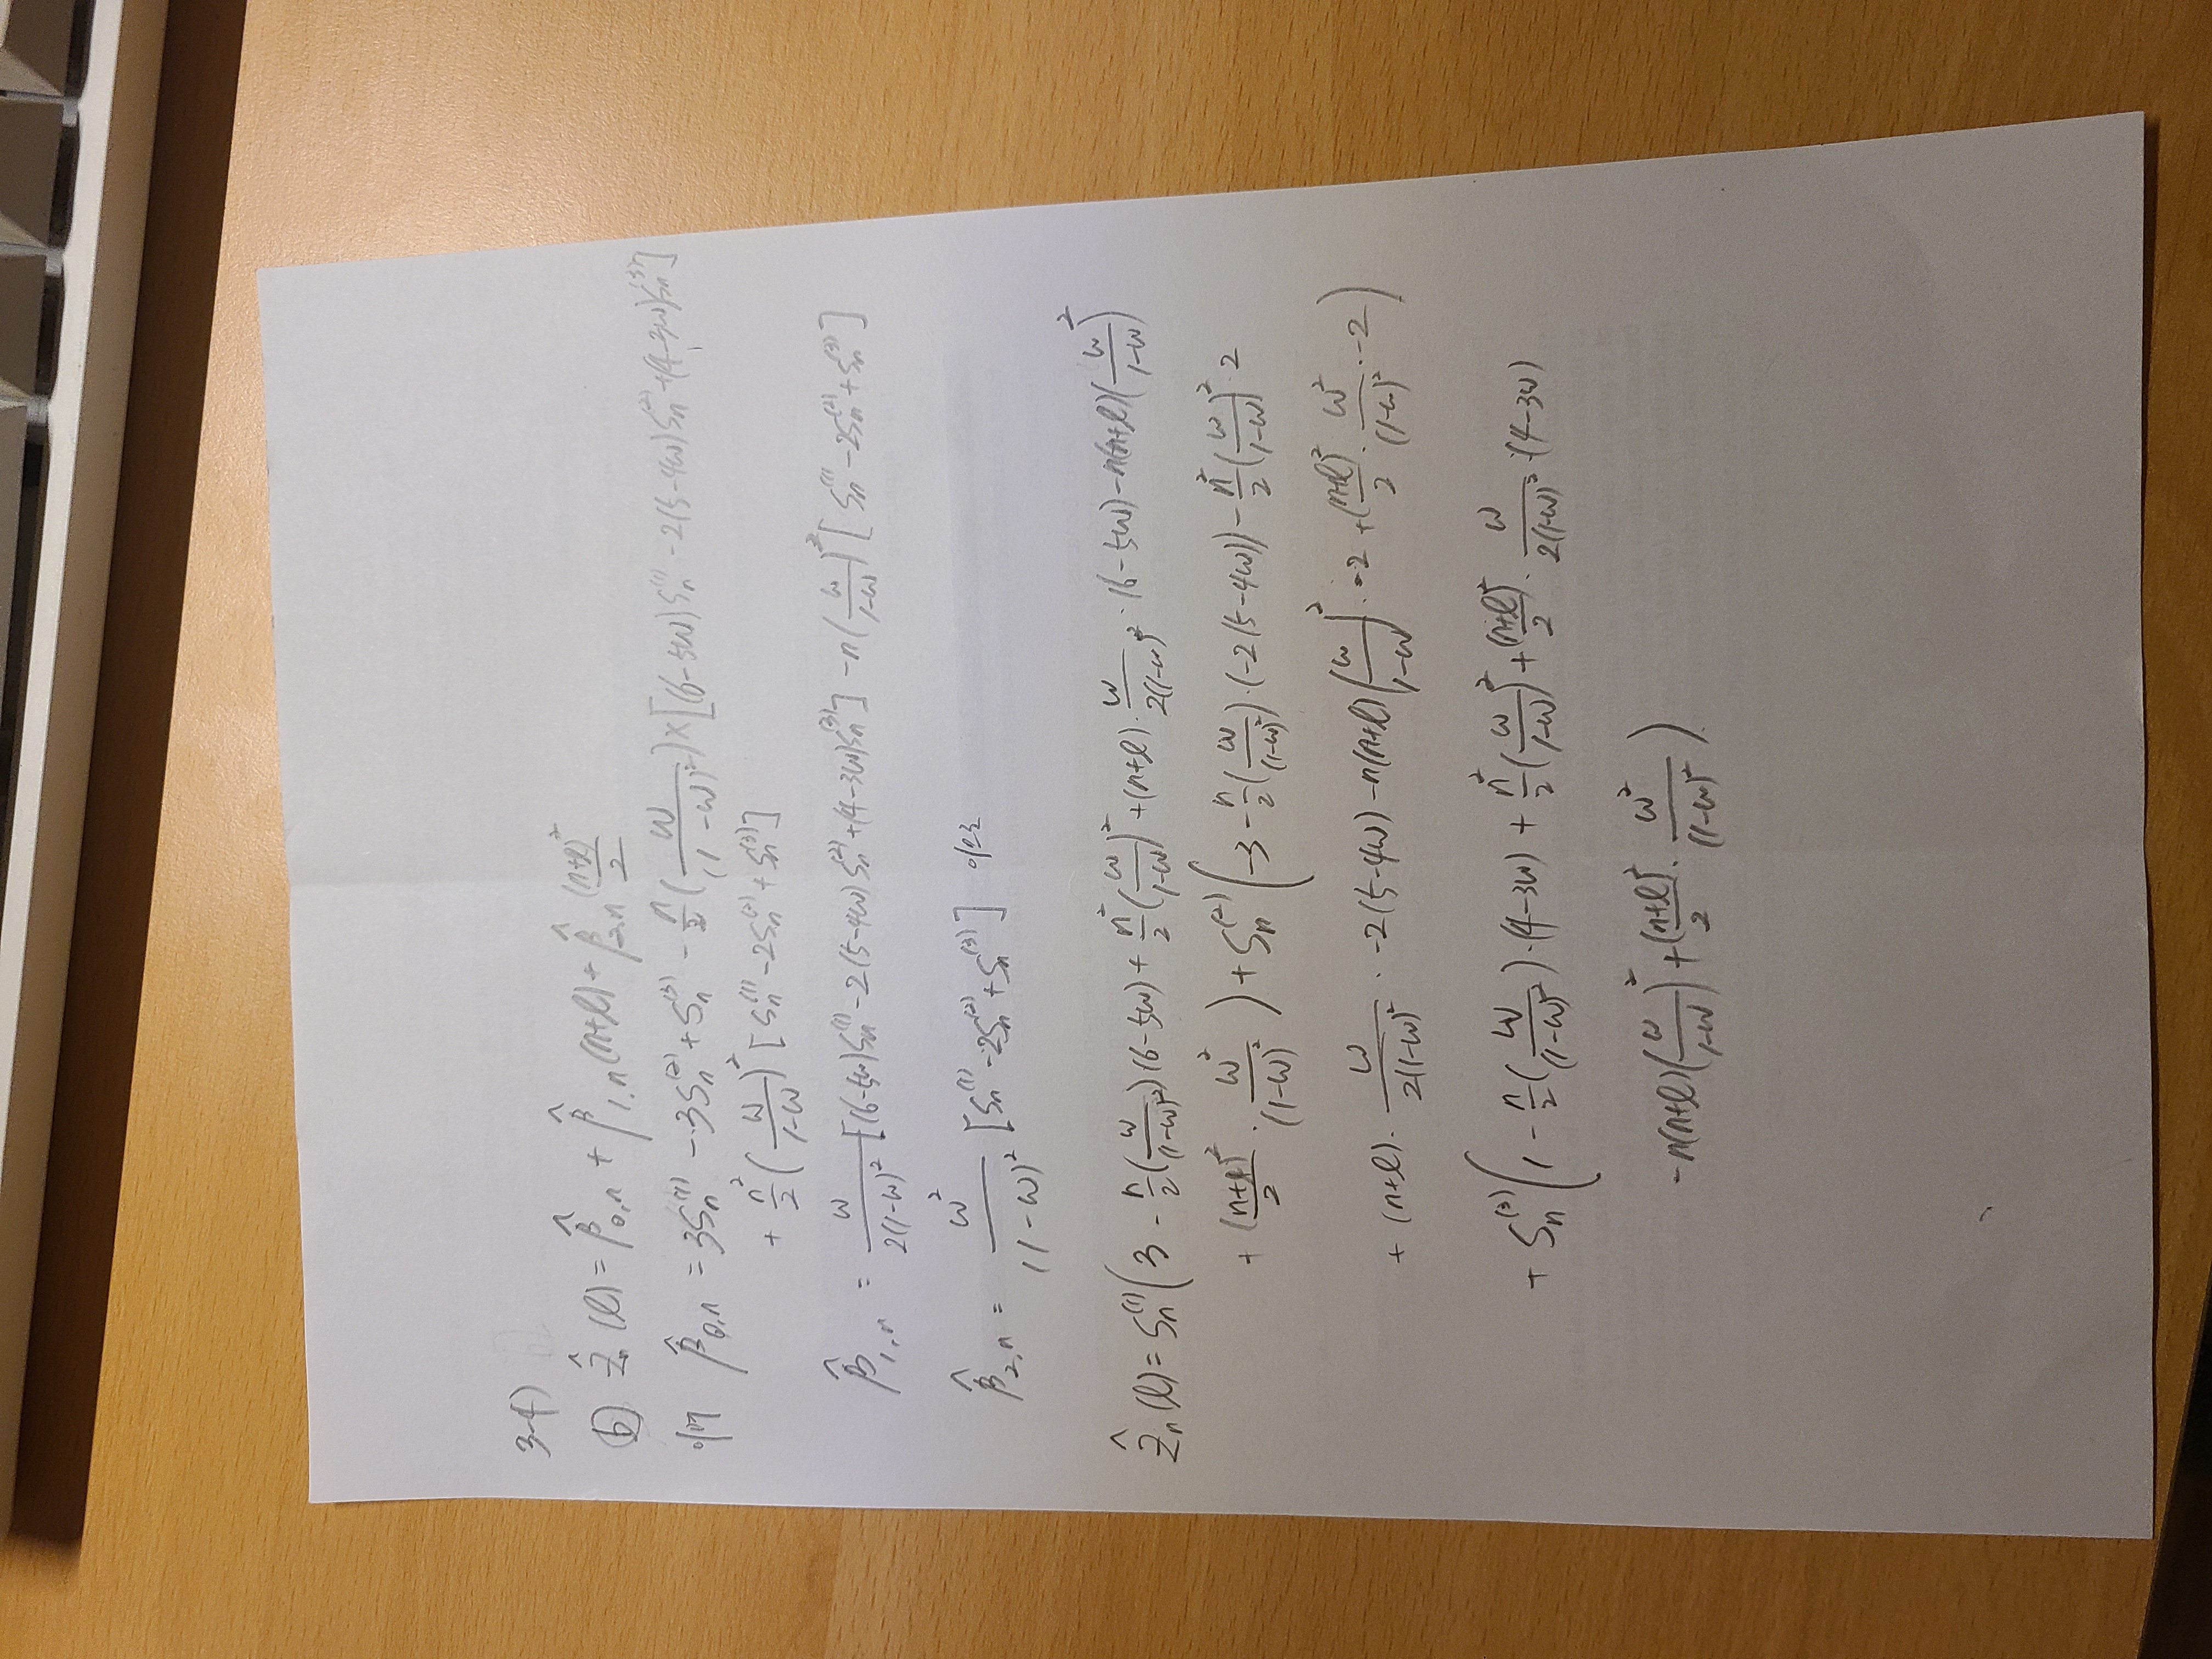 3-4)
ⓑ Ẑ_n(l) = β̂_{0,n} + β̂_{1,n}(n+l) + β̂_{2,n} (n+l)²/2
이때 β̂_{0,n} = 3S_n^{(1)} - 3S_n^{(2)} + S_n^{(3)} - n/2 (ω/(1-ω)²) × [(6-5ω)S_n^{(1)} - 2(5-4ω)S_n^{(2)} + (4-3ω)S_n^{(3)}]
+ n²/2 (ω/(1-ω))² [S_n^{(1)} - 2S_n^{(2)} + S_n^{(3)}]
β̂_{1,n} = ω/(2(1-ω)²) [(6-5ω)S_n^{(1)} - 2(5-4ω)S_n^{(2)} + (4-3ω)S_n^{(3)}] - n(ω/(1-ω))² [S_n^{(1)} - 2S_n^{(2)} + S_n^{(3)}]
β̂_{2,n} = ω²/(1-ω)² [S_n^{(1)} - 2S_n^{(2)} + S_n^{(3)}] 이므로
Ẑ_n(l) = S_n^{(1)} (3 - n/2 (ω/(1-ω)²)(6-5ω) + n²/2 (ω/(1-ω))² + (n+l) · ω/(2(1-ω)²) · (6-5ω) - n(n+l)(ω/(1-ω))²
+ (n+l)²/2 · ω²/(1-ω)² ) + S_n^{(2)} (-3 - n/2 (ω/(1-ω)²) · (-2(5-4ω)) - n²/2 (ω/(1-ω))² · 2
+ (n+l) · ω/(2(1-ω)²) · -2(5-4ω) - n(n+l)(ω/(1-ω))² · -2 + (n+l)²/2 · ω²/(1-ω)² · -2 )
+ S_n^{(3)} (1 - n/2 (ω/(1-ω)²) · (4-3ω) + n²/2 (ω/(1-ω))² + (n+l)²/2 · ω/(2(1-ω)²) · (4-3ω)
- n(n+l)(ω/(1-ω))² + (n+l)²/2 · ω²/(1-ω)² )